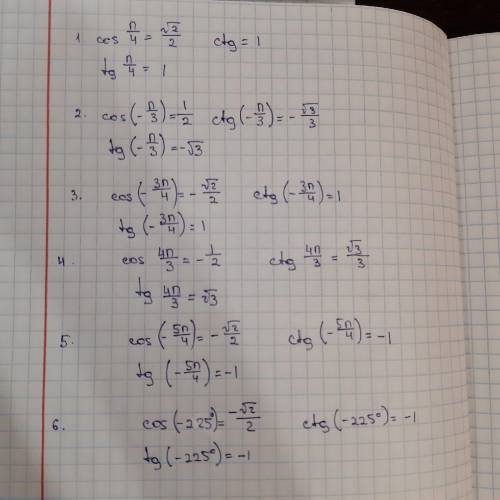 1. cos п/4 = √2/2 ctg = 1
tg п/4 = 1
2. cos(-п/3) = 1/2 ctg(-п/3) = -√3/3
tg(-п/3) = -√3
3. cos(-3п/4) = -√2/2 ctg(-3п/4) = 1
tg(-3п/4) = 1
4. cos 4п/3 = -1/2 ctg 4п/3 = √3/3
tg 4п/3 = √3
5. cos(-5п/4) = -√2/2 ctg(-5п/4) = -1
tg(-5п/4) = -1
6. cos(-225°) = -√2/2 ctg(-225°) = -1
tg(-225°) = -1